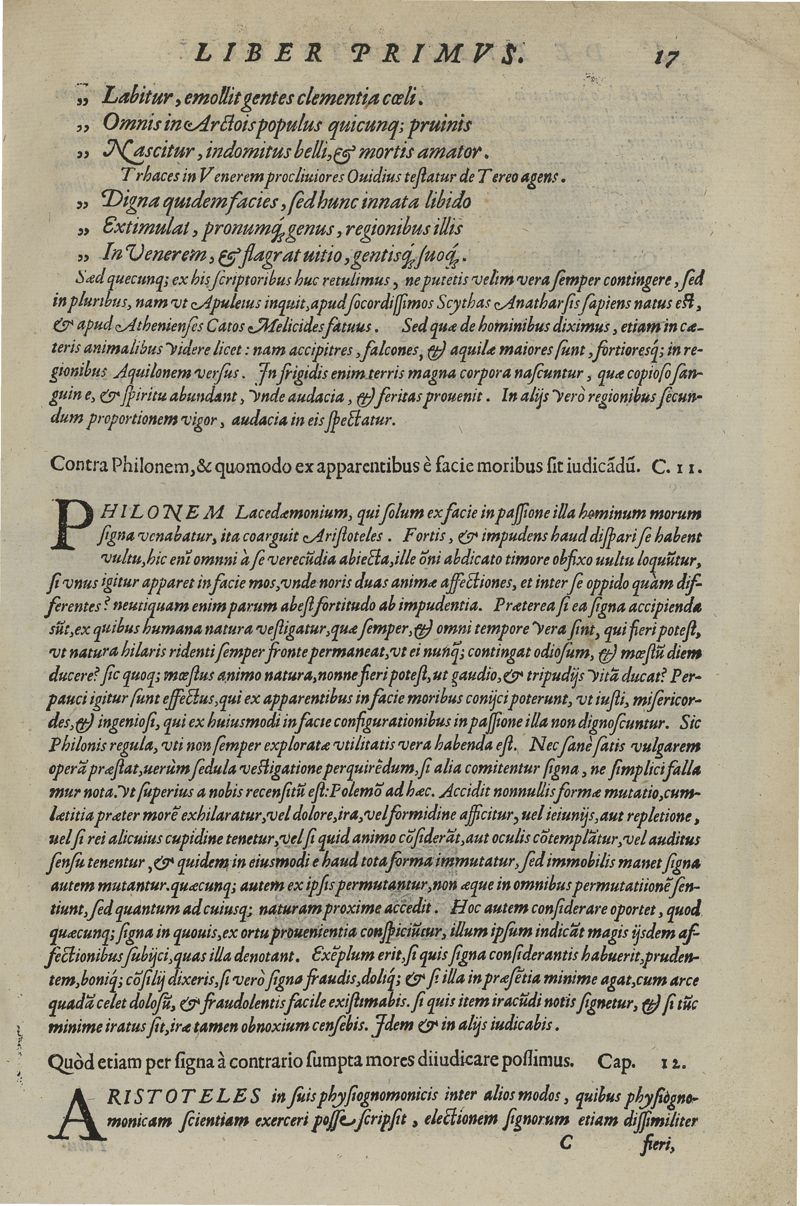 LIBER PRIMVS. 17
„ Labitur, emollit gentes clementia cœli.
„ Omnis in Arctois populus quicunq; pruinis
„ Nascitur, indomitus belli, & mortis amator.
Trhaces in Venerem procliuiores Ouidius testatur de Tereo agens.
„ Digna quidem facies, sed hunc innata libido
„ Extimulat, pronumq́; genus, regionibus illis
„ In Venerem, & flagrat uitio, gentisq́; suoq́;.
Sæd quecunq; ex his scriptoribus huc retulimus, ne putetis velim vera semper contingere, sed
in pluribus, nam vt Apuleius inquit, apud socordissimos Scythas Anatharsis sapiens natus est,
& apud Athenienses Catos Melicides fatuus. Sed quæ de hominibus diximus, etiam in cæ-
teris animalibus videre licet: nam accipitres, falcones, & aquilæ maiores sunt, fortioresq́; in re-
gionibus Aquilonem versus. In frigidis enim terris magna corpora nascuntur, quæ copioso san-
guine, & spiritu abundant, vnde audacia, & feritas prouenit. In alijs verò regionibus secun-
dum proportionem vigor, audacia in eis spectatur.
Contra Philonem, & quomodo ex apparentibus è facie moribus sit iudicādū. C. 11.
PHILONEM Lacedæmonium, qui solum ex facie in passione illa hominum morum
signa venabatur, ita coarguit Aristoteles. Fortis, & impudens haud dispari se habent
vultu, hic enī omnni à se verecūdia abiecta, ille ōni abdicato timore obfixo uultu loquūtur,
si vnus igitur apparet in facie mos, vnde noris duas animæ affectiones, et inter se oppido quàm dif-
ferentes? neutiquam enim parum abest fortitudo ab impudentia. Præterea si ea signa accipienda
sūt, ex quibus humana natura vestigatur, quæ semper, & omni tempore vera sint, qui fieri potest,
vt natura hilaris ridenti semper fronte permaneat, vt ei nunq̄; contingat odiosum, & mœstū diem
ducere? sic quoq; mœstus animo natura, nonne fieri potest, ut gaudio, & tripudijs vitā ducat? Per-
pauci igitur sunt effectus, qui ex apparentibus in facie moribus conijci poterunt, vt iusti, misericor-
des, & ingeniosi, qui ex huiusmodi in facte configurationibus in passione illa non dignoscuntur. Sic
Philonis regula, vti non semper exploratæ vtilitatis vera habenda est. Nec sanè satis vulgarem
operā præstat, uerùm sedula vestigatione perquirēdum, si alia comitentur signa, ne simplici falla
mur nota. vt superius a nobis recensitū est: Polemō ad hæc. Accidit nonnullis formæ mutatio, cum-
lætitia præter morē exhilaratur, vel dolore, ira, vel formidine afficitur, uel ieiunijs, aut repletione,
uel si rei alicuius cupidine tenetur, vel si quid animo cōsiderāt, aut oculis cōtemplātur, vel auditus
sensu tenentur, & quidem in eiusmodi e haud tota forma immutatur, sed immobilis manet signa
autem mutantur. quæcunq; autem ex ipsis permutantur, non æque in omnibus permutatiionē sen-
tiunt, sed quantum ad cuiusq; naturam proxime accedit. Hoc autem considerare oportet, quod
quæcunq; signa in quouis, ex ortu prouenientia conspiciūtur, illum ipsum indicāt magis ijsdem af-
fectionibus subijci, quas illa denotant. Exēplum erit, si quis signa considerantis habuerit, pruden-
tem, boniq́; cōsilij dixeris, si verò signa fraudis, doliq́; & si illa in præsētia minime agat, cum arce
quadā celet dolosū, & fraudolentis facile existimabis. si quis item iracūdi notis signetur, & si tūc
minime iratus sit, iræ tamen obnoxium censebis. Idem & in alijs iudicabis.
Quòd etiam per signa à contrario sumpta mores diiudicare possimus. Cap. 12.
ARISTOTELES in suis physiognomonicis inter alios modos, quibus physiogno-
monicam scientiam exerceri posse scripsit, electionem signorum etiam dissimiliter
C fieri,